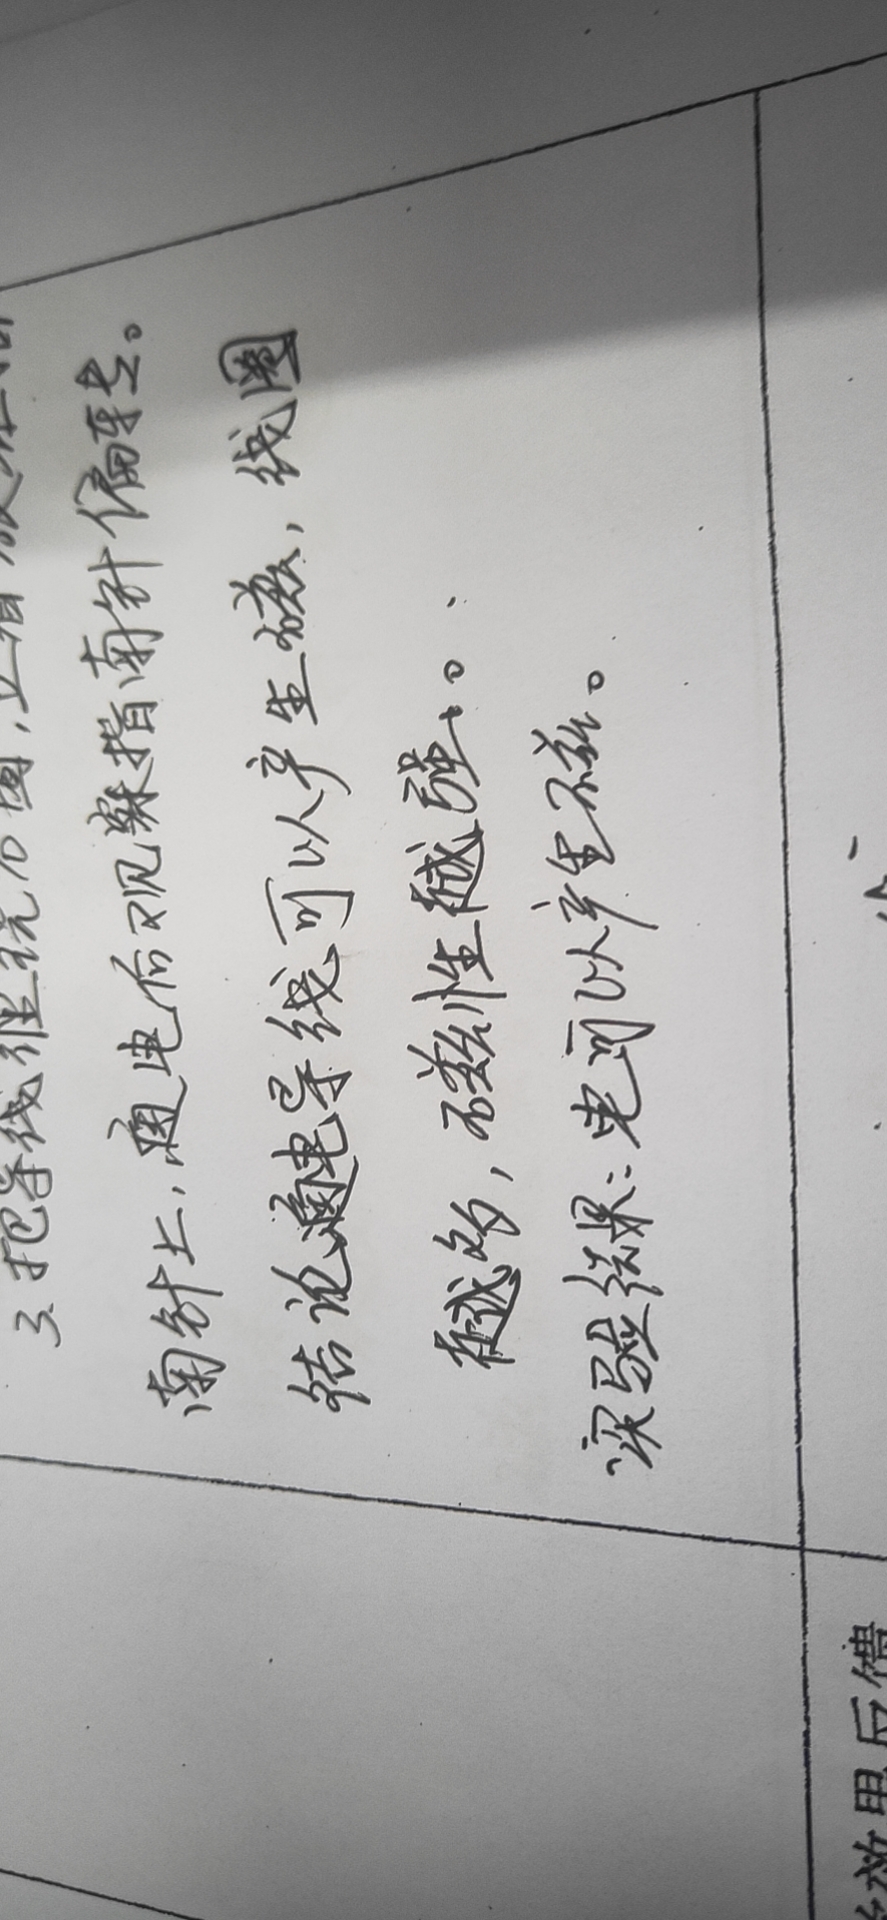 3. 把导线继绕10圈,立着放在指
南针上,通电后观察指南针偏转。
结论通电导线可以产生磁,线圈
越多,磁性越强。
实验结果:电可以产生磁。
效果反馈